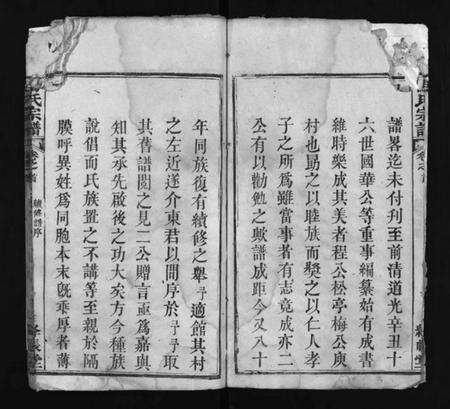 譜畧迄未付刋至前清道光辛丑十
六世國華公等重事編纂始有成書
維時樂成其美者程公松亭梅公庾
村也勗之以睦族而奬之以仁人孝
子之所爲雖當事者有志竟成亦二
公有以勷勉之歟譜成距今又八十
年同族復有續修之舉予適館其村
之左近遂介東君以問序於予予取
其舊譜閱之見二公贈言亟爲嘉與
知其承先啟後之功大矣方今種族
說倡而氏族置之不講等至親於隔
膜呼異姓爲同胞本末旣乗厚者薄
氏宗譜
卷之首
續修譜序
氏宗譜
卷之首